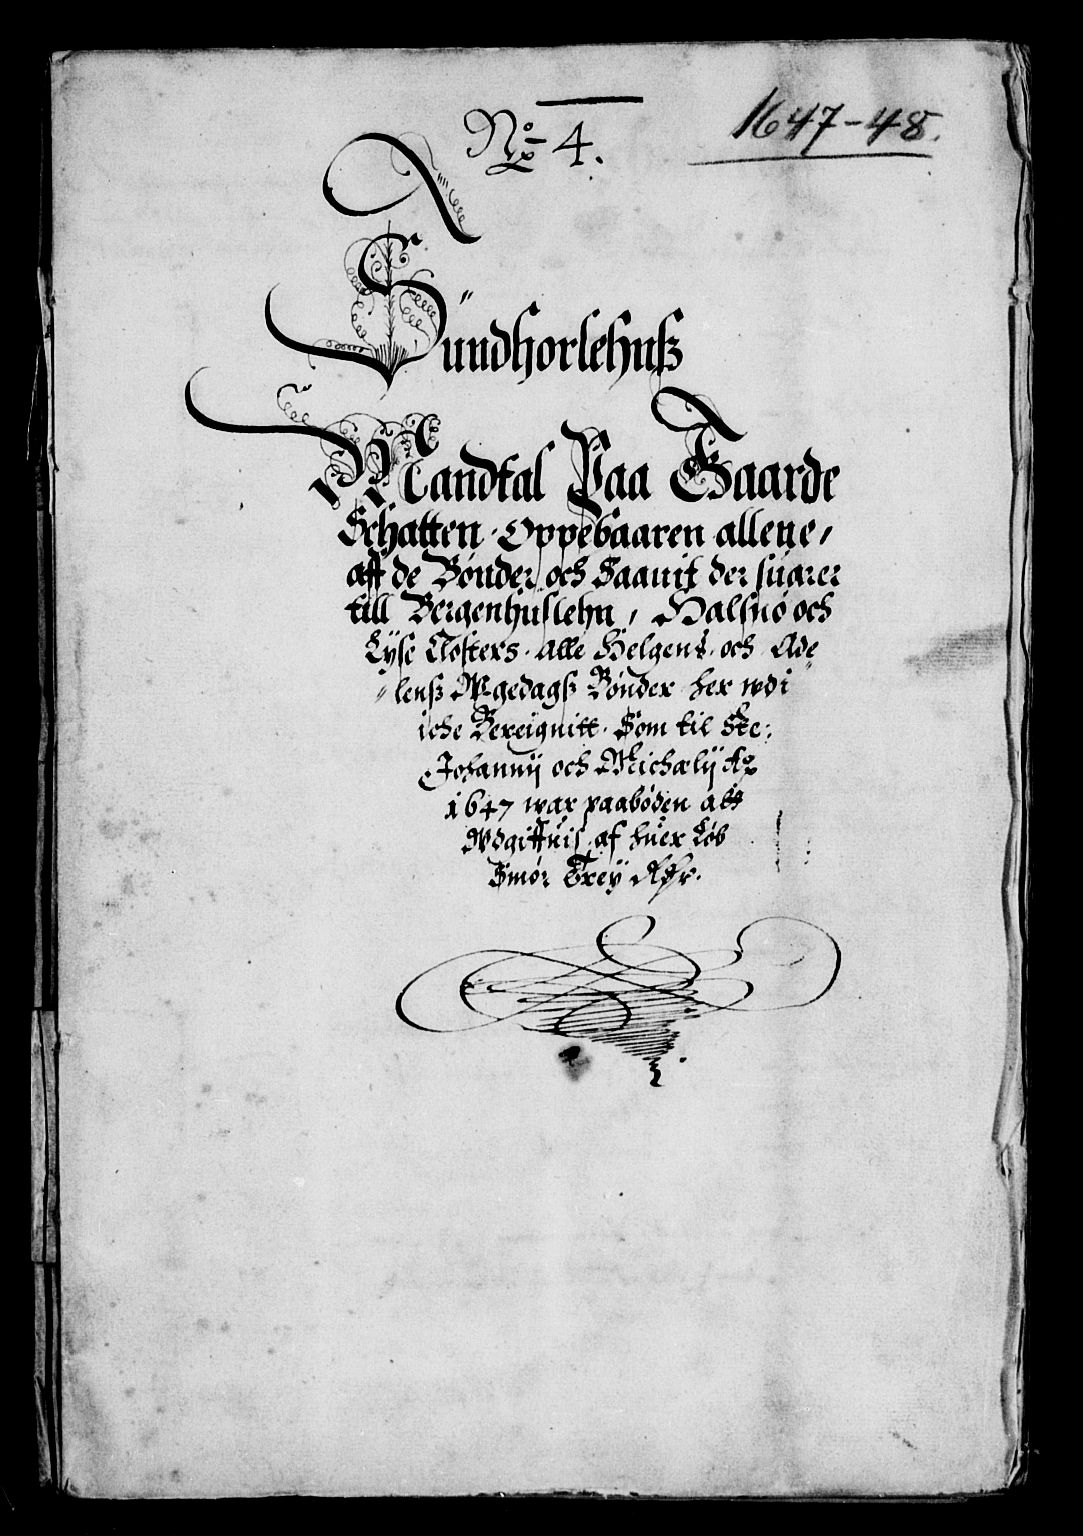 1647-48.
No 4.
Sündhorlehnß
Mandtal Paa Gaarde
Schatten Oppebaaren allene,
aff de Bønder och Saauit der suarer
till Bergenhuslehn, Halsnö och
Lyse Closters. alle Helgens. och Ade
lenß Wgedagß Bønder her wdi
iche Bereignitt. Som til Ste:
Johannij och Michælij Ao
1647 war paabøden att
Wdgiffuis. af huer Løb
Smør Trey